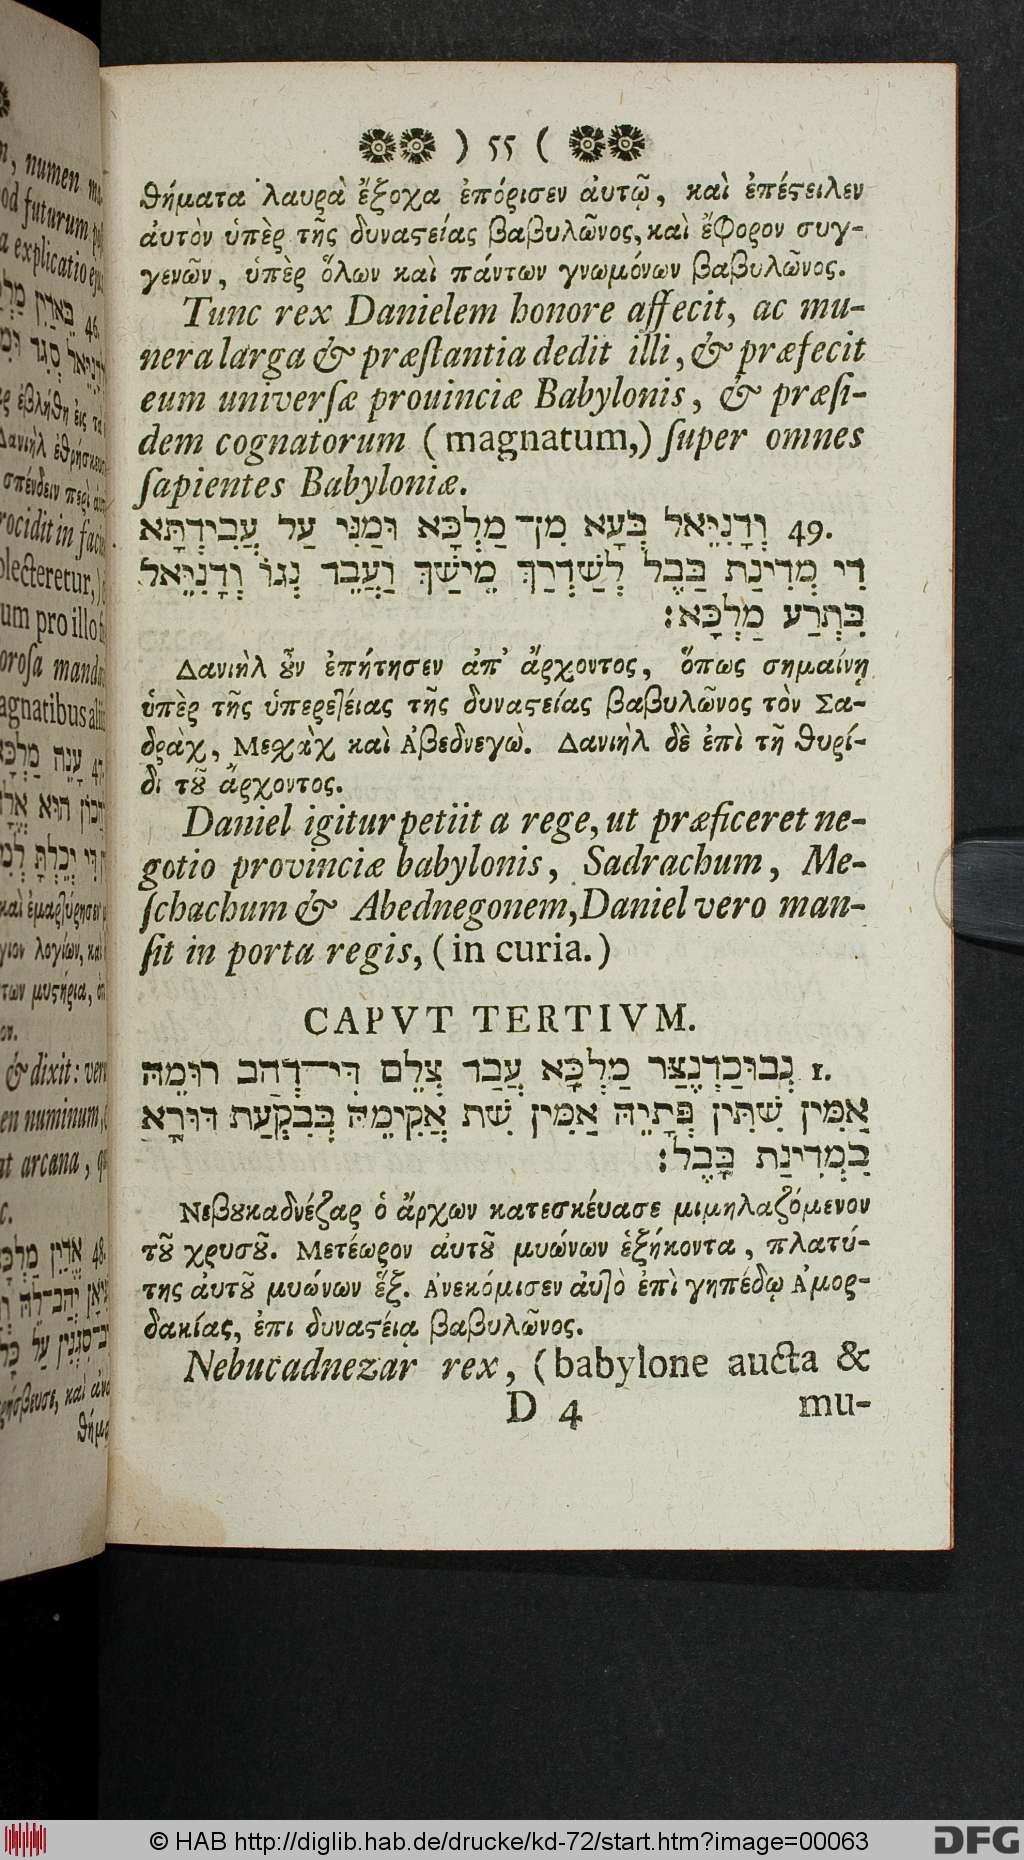 ) 55 (
θήματα λαυρὰ ἔξοχα ἐπόρισεν ἀυτῷ, καὶ ἐπέϛειλεν
ἀυτὸν ὑπὲρ τῆς δυναϛείας βαβυλῶνος, καὶ ἔφορον συγ-
γενῶν, ὑπὲρ ὅλων καὶ πάντων γνωμόνων βαβυλῶνος.
Tunc rex Danielem honore affecit, ac mu-
nera larga & præſtantia dedit illi, & præfecit
eum univerſæ prouinciæ Babylonis, & præſi-
dem cognatorum (magnatum,) ſuper omnes
ſapientes Babyloniæ.
49. וְדָנִיֵּאל בְּעָא מִן־ מַלְכָּא וּמַנִּי עַל עֲבִידְתָּא
דִי מְדִינַת בָּבֶל לְשַׁדְרַךְ מֵישַׁךְ וַעֲבֵד נְגוֹ וְדָנִיֵּאל
בִּתְרַע מַלְכָּא׃
Δανιὴλ ȣ̓ν ἐπήτησεν ἀπ' ἄρχοντος, ὅπως σημαίνῃ
ὑπὲρ τῆς ὑπερετείας τῆς δυναϛείας βαβυλῶνος τὸν Σα-
δρὰχ, Μεχὰχ καὶ Ἀβεδνεγὼ. Δανιὴλ δὲ ἐπὶ τῆ θυρί-
δι τȣ͂ ἄρχοντος.
Daniel igitur petiit a rege, ut præficeret ne-
gotio provinciæ babylonis, Sadrachum, Me-
ſchachum & Abednegonem, Daniel vero man-
ſit in porta regis, (in curia.)
CAPVT TERTIVM.
1. נְבוּכַדְנֶצַּר מַלְכָּא עֲבַד צְלֵם דִּי־דְהַב רוּמֵהּ
אַמִּין שִׁתִּין פְּתָיֵהּ אַמִּין שִׁת אֲקִימֵהּ בְּבִקְעַת דּוּרָא
בִּמְדִינַת בָּבֶל׃
Νεβȣκαδνέζαρ ὁ ἄρχων κατεσκέυασε μιμηλαζόμενον
τȣ͂ χρυσȣ͂. Μετέωρον ἀυτȣ͂ μυώνων ἑξήκοντα, πλατύ-
της ἀυτȣ͂ μυώνων ἕξ. Ἀνεκόμισεν ἀυτὸ ἐπὶ γηπέδῳ Ἀμορ-
δακίας, ἐπι δυναϛείᾳ βαβυλῶνος.
Nebucadnezar rex, (babylone aucta &
D 4 mu-
© HAB http://diglib.hab.de/drucke/kd-72/start.htm?image=00063
DFG